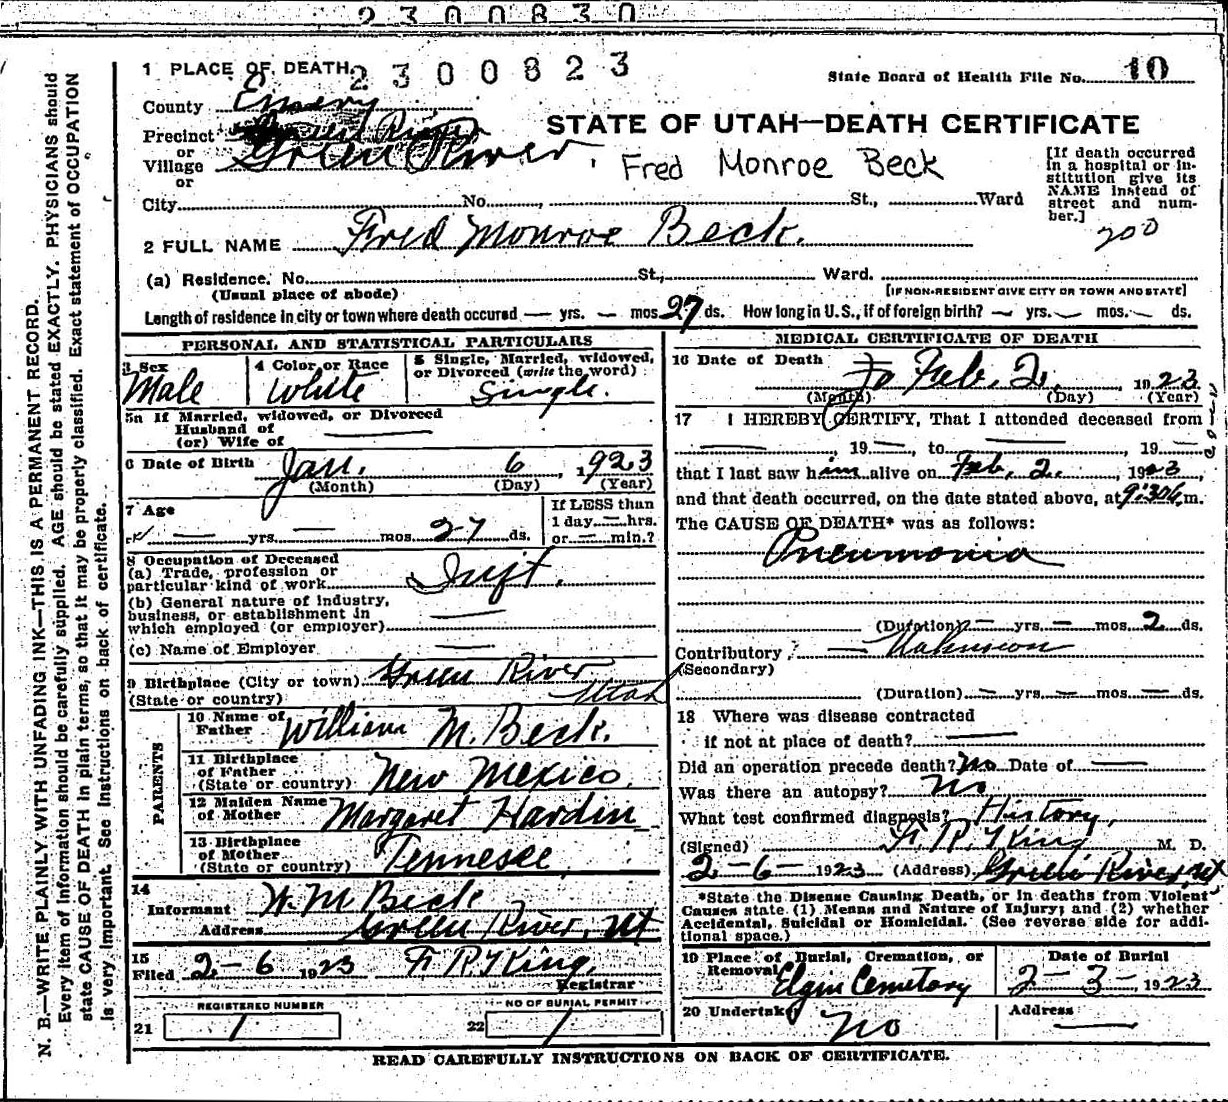 2300830
1 PLACE OF DEARTH 2300823
State Board of Health File No. 10
County Emery
Precinct Green River
or
Village Green River
or
STATE OF UTAH—DEATH CERTIFICATE
Fred Monroe Beck
[If death occurred
in a hospital or in-
stitution give its
NAME instead of
street and num-
ber.]
200
City No. St., Ward
2 FULL NAME Fred Monroe Beck.
(a) Residence. No. St., Ward.
(Usual place of abode) [IF NON-RESIDENT GIVE CITY OR TOWN AND STATE]
Length of residence in city or town where death occured — yrs. — mos. 27 ds. How long in U.S., if of foreign birth? — yrs. — mos. — ds.
PERSONAL AND STATISTICAL PARTICULARS
3 Sex
Male
4 Color or Race
White
5 Single, Married, widowed,
or Divorced (write the word)
Single.
5a If Married, widowed, or Divorced
Husband of
(or) Wife of —
6 Date of Birth Jan. 6, 1923
(Month) (Day) (Year)
7 Age
— yrs. — mos. 27 ds.
If LESS than
1 day — hrs.
or — min.?
8 Occupation of Deceased
(a) Trade, profession or
particular kind of work Inft.
(b) General nature of industry,
business, or establishment in
which employed (or employer) —
(c) Name of Employer —
9 Birthplace (City or town) Green River
(State or country) Utah
PARENTS
10 Name of
Father William M. Beck.
11 Birthplace
of Father
(State or country) New Mexico.
12 Maiden Name
of Mother Margaret Hardin
13 Birthplace
of Mother
(State or country) Tennesee.
14
Informant W. M Beck
Address Green River, Ut
15
Filed 2-6 1923 F. R. King.
Registrar
REGISTERED NUMBER
21 1
NO OF BURIAL PERMIT
22 1
MEDICAL CERTIFICATE OF DEATH
16 Date of Death Feb. 2. , 1923
(Month) (Day) (Year)
17 I HEREBY CERTIFY, That I attonded deceased from
— , 19— , to — , 19—
that I last saw him alive on Feb. 2. 1923,
and that death occurred, on the date stated above, at 9:30 m.
The CAUSE OF DEATH* was as follows:
Pneumonia
(Duration) — yrs. — mos. 2 ds.
Contributory — Unknown
(Secondary)
(Duration) — yrs. — mos. — ds.
18 Where was disease contracted
if not at place of death? —
Did an operation precede death? No Date of —
Was there an autopsy? No
What test confirmed diagnosis? History.
(Signed) F. R. King M. D.
2-6- 1923 (Address) Green River, Ut
*State the Disease Causing Death, or in deaths from Violent
Causes state (1) Means and Nature of Injury; and (2) whether
Accidental, Suicidal or Homicidal. (See reverse side for addi-
tional space.)
19 Place of Burial, Cremation, or
Removal Elgin Cemetary
Date of Burial
2-3- 1923
20 Undertaker No
Address —
READ CAREFULLY INSTRUCTIONS ON BACK OF CERTIFICATE.
N. B.—WRITE PLAINLY WITH UNFADING INK—THIS IS A PERMANENT RECORD.
Every item of information should be carefully supplied. AGE should be stated EXACTLY. PHYSICIANS should
state CAUSE OF DEATH in plain terms, so that it may be properly classified. Exact statement of OCCUPATION
is very important. See Instructions on back of certificate.